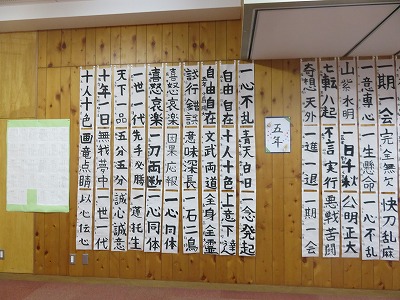 一期一会 完全無欠 快刀乱麻
一意専心 一生懸命 一心不乱
山紫水明 一日千秋 公明正大
七転八起 不言実行 悪戦苦闘
奇想天外 一進一退 一期一会
五年
一心不乱 青天白日 一念発起
自由自在 十人十色 上意下達
自由自在 文武両道 全身全霊
試行錯誤 意味深長 一石二鳥
喜怒哀楽 因果応報 一心同体
喜怒哀楽 一刀両断 一心同体
一世一代 先手必勝 一蓮托生
天下一品 五分五分 誠心誠意
十年一日 無我夢中 一世一代
十人十色 画竜点睛 以心伝心